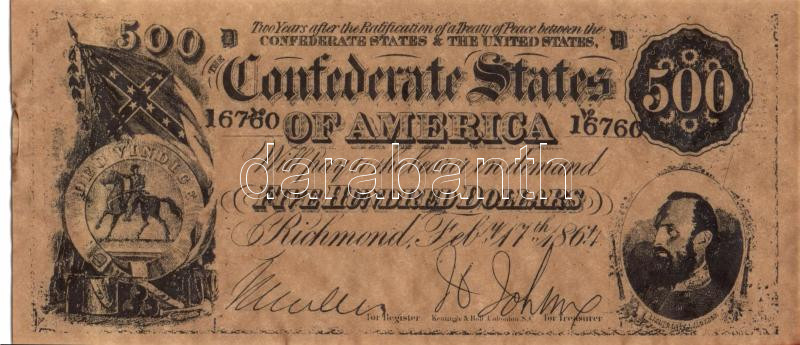 Two Years after the Ratification of a Treaty of Peace between the
CONFEDERATE STATES & THE UNITED STATES,
500 D D
THE
Confederate States 500
16760 OF AMERICA 16760
Will pay to the bearer on demand
darabanth
DEO VINDICE
FIVE HUNDRED DOLLARS
Richmond, Feby. 17th 1864
for Register Keatinge & Ball Columbia, S.C. for Treasurer